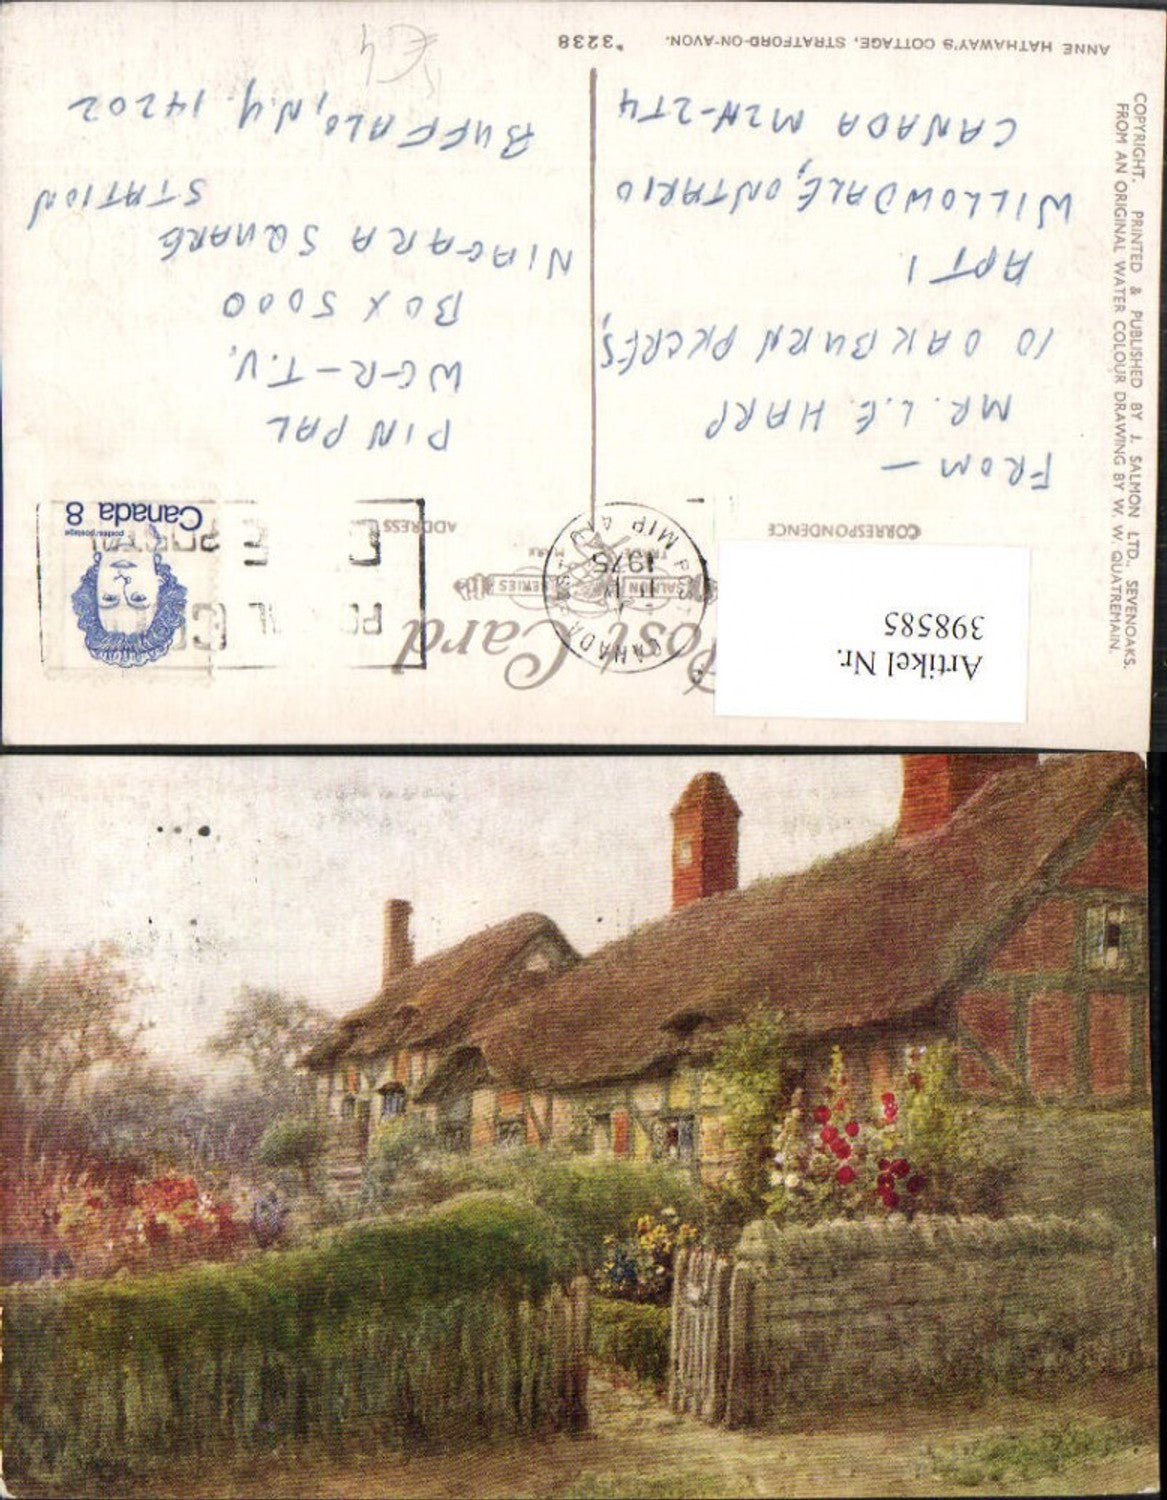 Post Card
CORRESPONDENCE
ADDRESS
SALMON SERIES
TRADE MARK
Artikel Nr.
398585
Canada 8
postes/postage
CANADA
PM
1975
FROM —
MR. L.E. HARP
10 OAKBURN PKCRES,
APT 1
WILLOWDALE, ONTARIO
CANADA M2N-2T4
PIN PAL
WGR-T.V.
BOX 5000
NIAGARA SQUARE
STATION
BUFFALO, N.Y. 14202
ANNE HATHAWAY'S COTTAGE, STRATFORD-ON-AVON.
*3238
COPYRIGHT. PRINTED & PUBLISHED BY J. SALMON LTD., SEVENOAKS.
FROM AN ORIGINAL WATER COLOUR DRAWING BY W. W. QUATREMAIN.